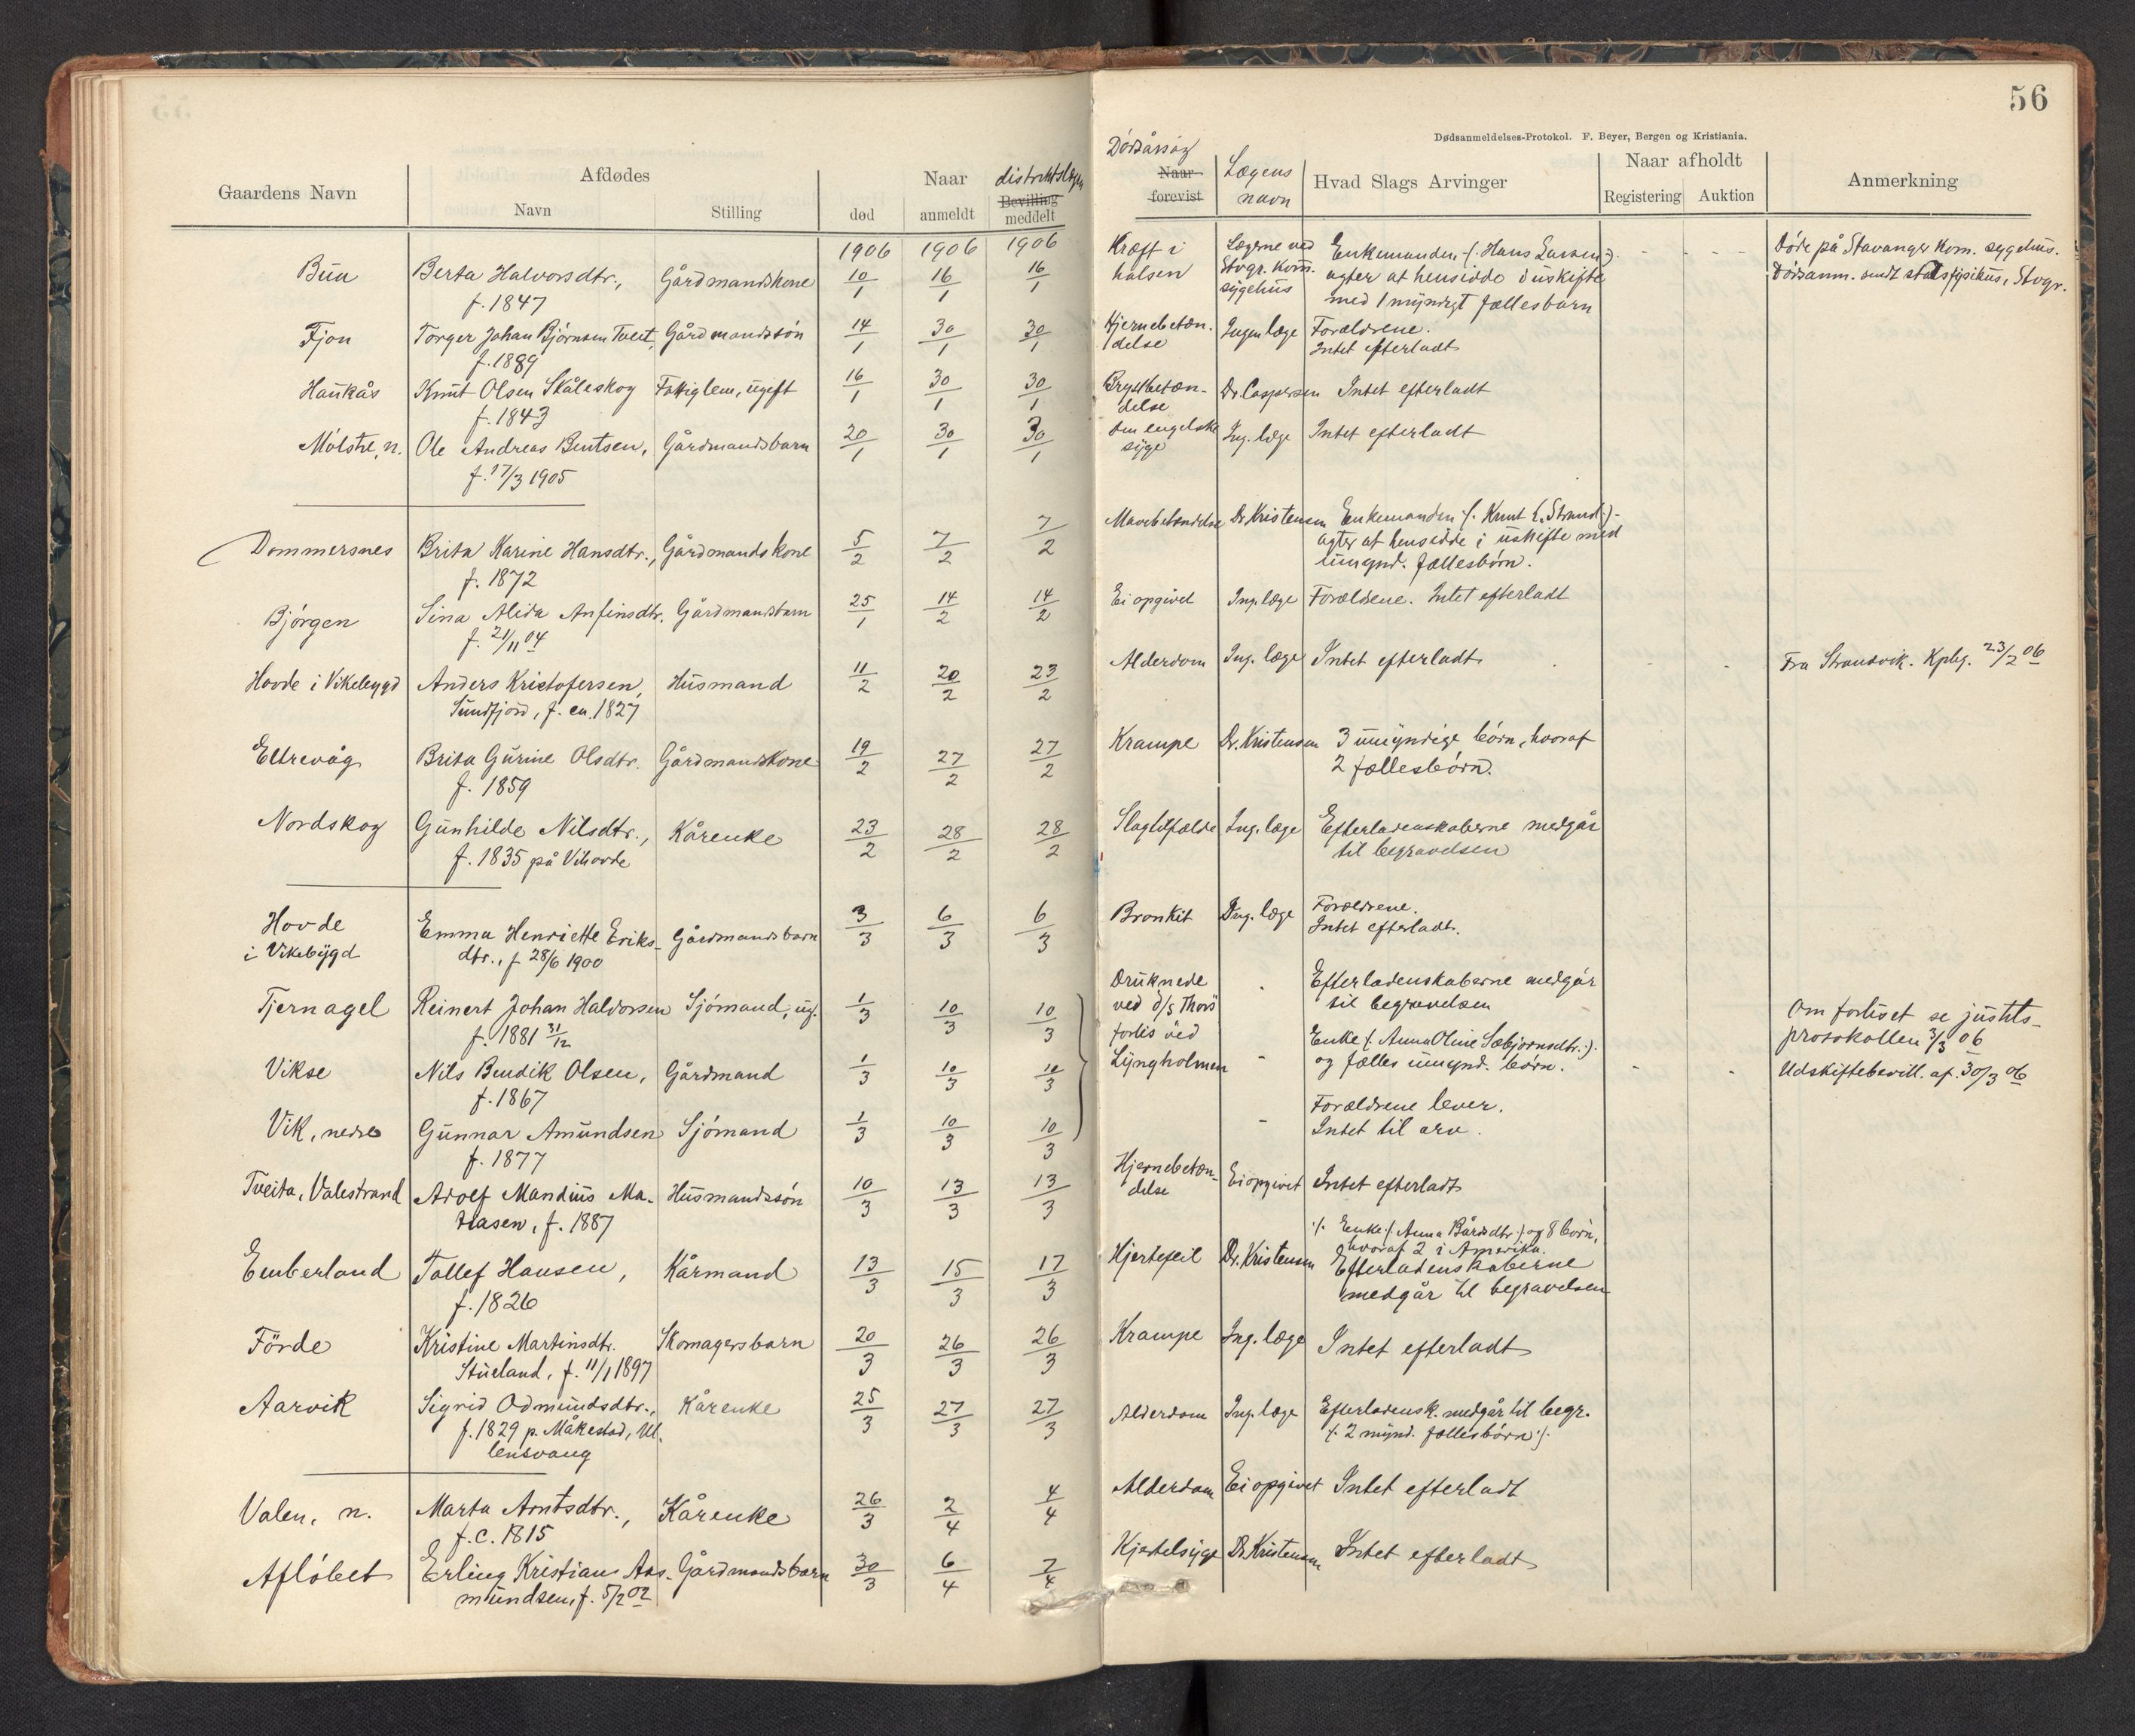 56
Dødsanmeldelses-Protokol. F. Beyer, Bergen og Kristiania.
Gaardens Navn
Afdødes
Navn
Stilling
Naar
død
anmeldt
distriktslægen
Bevilling
meddelt
Dödsårsag
Naar
forevist
Lægens
navn
Hvad Slags Arvinger
Naar afholdt
Registering
Auktion
Anmerkning
1906 1906 1906
Bua Berta Halvorsdtr., Gårdmandskone 10/1 16/1 16/1
f. 1847
Kræft i
halsen
Lægerne ved
Stvgr. kom.
sygehus
Enkemanden /: Hans Larsen :/
agter at hensidde i uskifte
med 1 myndigt fællesbarn
Döde på Stavanger kom. sygehus.
Dödsanm. sendt stadsfysikus, Stvgr.
Fjon Torger Johan Björnsen Tveit, Gårdmandssön 14/1 30/1 30/1
f. 1889
Hjernebetæn-
delse
Ingen læge
Forældrene.
Intet efterladt
Haukås Knut Olsen Skåleskog Fattiglem, ugift 16/1 30/1 30/1
f. 1843
Brystbetæn-
delse
Dr. Caspersen Intet efterladt
Mölstre, n. Ole Andreas Bentsen, Gårdmandsbarn 20/1 30/1 30/1
f. 17/3 1905
Den engelske
syge
Ing. læge Intet efterladt
Dommersnes Brita Karine Hansdtr., Gårdmandskone 5/2 7/2 7/2
f. 1872
Mavebetændelse Dr. Kristensen Enkemanden /: Knut L. Strand :/
agter at hensidde i uskifte med
umynd. fællesbörn.
Bjørgen Sina Alida Anfinsdtr. Gårdmandsbarn 25/1 14/2 14/2
f. 21/11 04
Ei opgived Ing. læge Forældrene. Intet efterladt
Hovde i Vikebygd Anders Kristofersen, Husmand 11/2 20/2 23/2
Sundfjord, f. ca. 1827
Alderdom Ing. læge Intet efterladt
Fra Strandvik. Kpbg. 23/2 06
Eltrevåg Brita Gurine Olsdtr. Gårdmandskone 19/2 27/2 27/2
f. 1859
Krampe Dr. Kristensen 3 umyndige börn, hvoraf
2 fællesbörn.
Nordskog Gunhilde Nilsdtr., Kårenke 23/2 28/2 28/2
f. 1835 på Vihovde
Slagtilfælde Ing. læge Efterladenskaberne medgår
til begravelsen
Hovde
i Vikebygd
Emma Henriette Eriks- Gårdmandsbarn 3/3 6/3 6/3
dtr., f 28/6 1900
Bronkit Ing. læge Forældrene.
Intet efterladt.
Tjernagel Reinert Johan Haldorsen Sjömand, ug. 1/3 10/3 10/3
f. 1881 31/12
Druknede
ved d/s Thors
forlis ved
Lyngholmen
Efterladenskaberne medgår
til begravelsen
Om forliset se justits-
protokollen 3/3 06
Vikse Nils Bendik Olsen, Gårdmand 1/3 10/3 10/3
f. 1867
Enke /: Anna Oline Sæbjörnsdtr. :/
og fælles umynd. börn.
Udskiftebevill. af 30/3 06
Vik, nedre Gunnar Amundsen Sjömand 1/3 10/3 10/3
f. 1877
Forældrene lever.
Intet til arv.
Tveita, Valestrand Adolf Mandius Ma- Husmandssön 10/3 13/3 13/3
tiasen, f. 1887
Hjernebetæn-
delse
Ei opgivet Intet efterladt
Emberland Tollef Hansen, Kårmand 13/3 15/3 17/3
f. 1826
Hjertefeil Dr. Kristensen
/: Enke /: Anna Bårdsdtr :/ og 8 börn,
hvoraf 2 i Amerika.
Efterladenskaberne
medgår til begravelsen
Förde Kristine Martinsdtr. Skomagersbarn 20/3 26/3 26/3
Stueland, f. 11/1 1897
Krampe Ing. læge Intet efterladt
Aarvik Sigrid Odmundsdtr., Kårenke 25/3 27/3 27/3
f. 1829 p. Måkestad, Ul-
lensvang
Alderdom Ing. læge Efterladensk. medgår til begr.
/: 2 mynd. fællesbörn :/
Valen, n. Marta Arntsdtr., Kårenke 26/3 2/4 4/4
f. c. 1815
Alderdom Ei opgivet Intet efterladt
Aflöbet Erling Kristian Aas- Gårdmandsbarn 30/3 6/4 7/4
mundsen, f. 5/2 02
Kjertelsyge Dr. Kristensen Intet efterladt